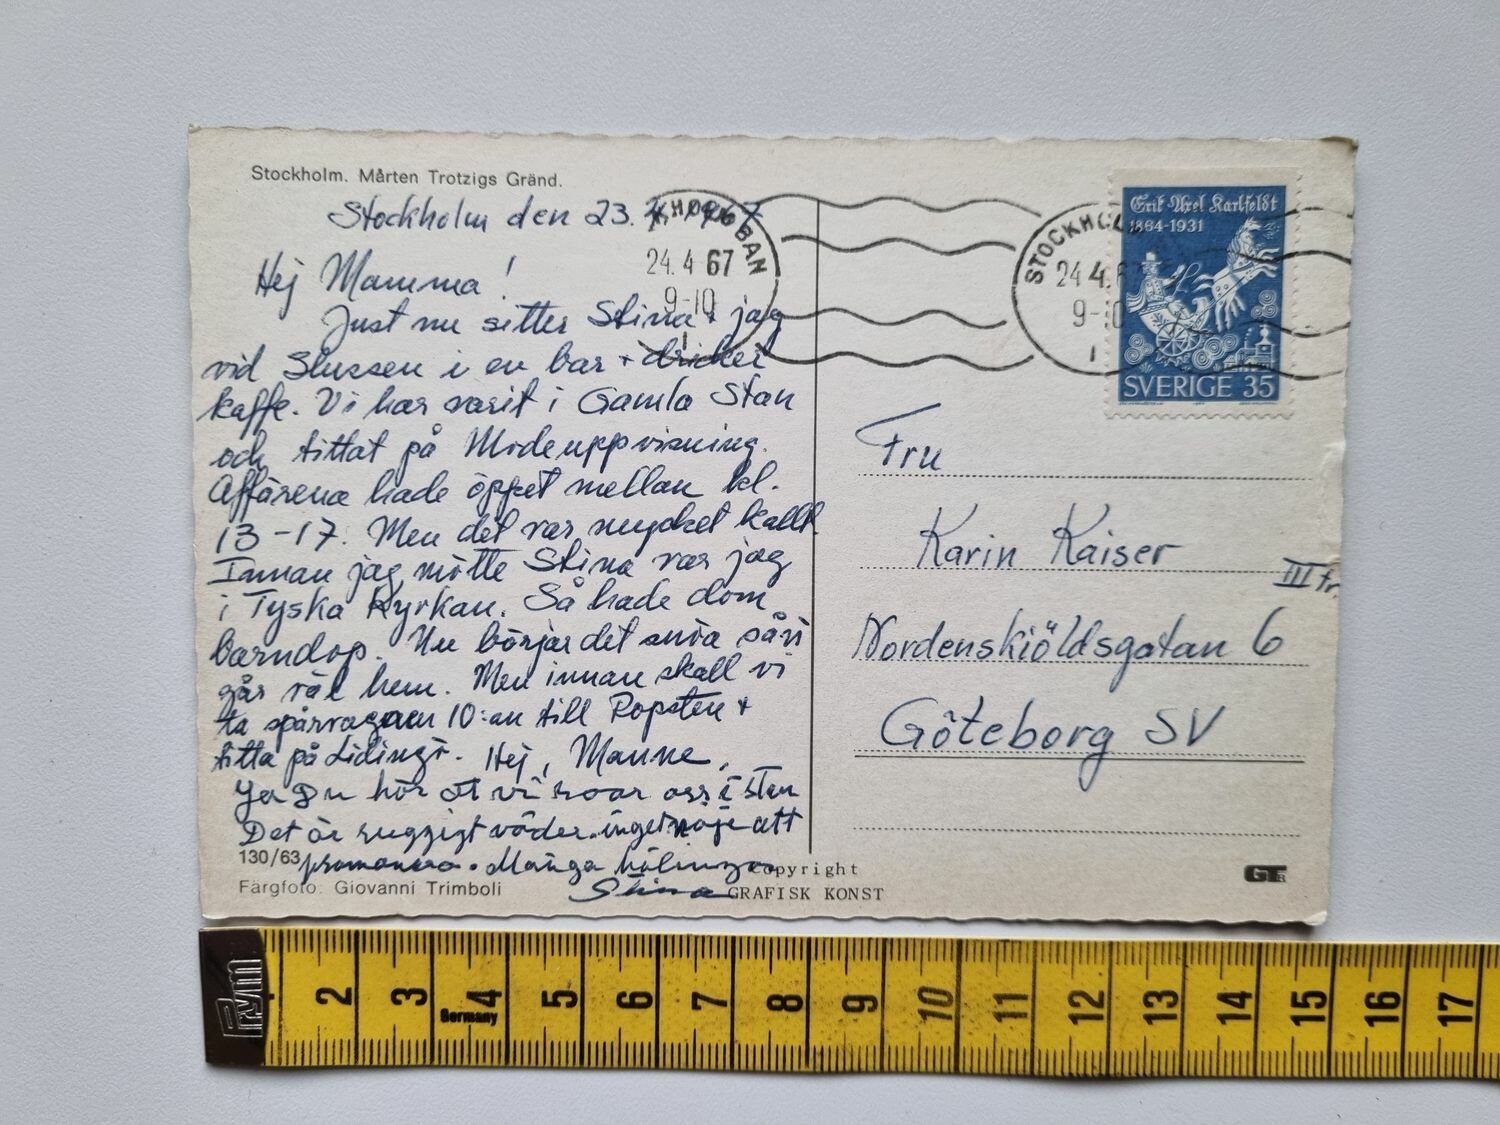 Stockholm. Mårten Trotzigs Gränd.
Stockholm den 23. 4 1967
Hej Mamma!
Just nu sitter Stina + jag
vid Slussen i en bar + dricker
kaffe. Vi har varit i Gamla Stan
och tittat på Modeuppvisning.
Affärerna hade öppet mellan kl.
13-17. Men det var mycket kallt.
Innan jag mötte Stina var jag
i Tyska Kyrkan. Så hade dom
barndop. Nu börjar det snöa så vi
går väl hem. Men innan skall vi
ta spårvagnen 10:an till Ropsten +
titta på Lidingö. Hej, Manne,
Ja Du hör at vi roar oss i sten
Det är ruggigt väder. inget nöje att
promenera. Många hälsningar
Stina
130/63
Färgfoto: Giovanni Trimboli
Copyright
GRAFISK KONST
KHOLM BAN
24.4 67
9-10
1
STOCKHOL
24 4.6
9-10
1
Erik Axel Karlfeldt
1864-1931
SVERIGE 35
Fru
Karin Kaiser
III tr.
Nordenskiöldsgatan 6
Göteborg SV
Prym
2 3 4 5 6 7 8 9 10 11 12 13 14 15 16 17
Germany